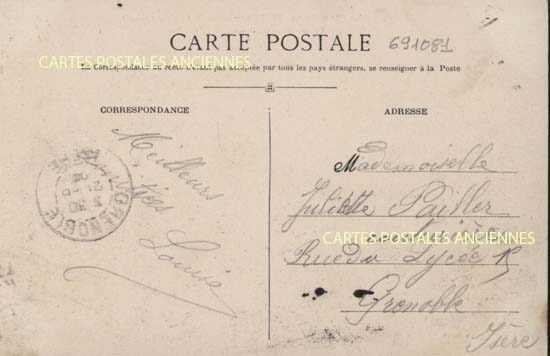 CARTE POSTALE
691081
CARTES POSTALES ANCIENNES
La Correspondance au recto n'étant pas acceptée par tous les pays étrangers, se renseigner à la Poste
CORRESPONDANCE
Meilleurs
Louise
GRENOBLE
ISERE
ADRESSE
Mademoiselle
Juliette Pailler
CARTES POSTALES ANCIENNES
Rue du Lycée 15
Grenoble
Isère